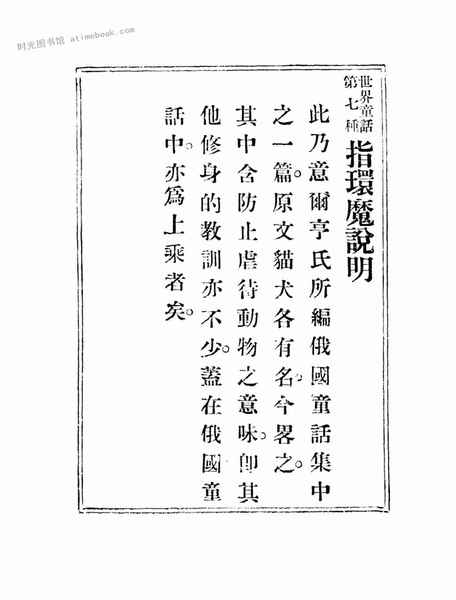 时光图书馆 atimebook.com
世界童話
第七種
指環魔說明
此乃意爾亨氏所編俄國童話集中
之一篇。原文貓犬各有名、今畧之。
其中含防止虐待動物之意味、卽其
他修身的教訓亦不少。蓋在俄國童
話中、亦爲上乘者矣。